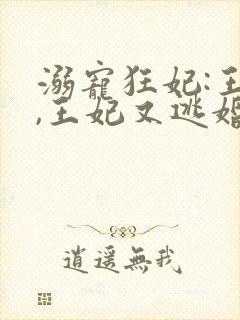 溺寵狂妃:王
,王妃又逃婚
逍遙無我